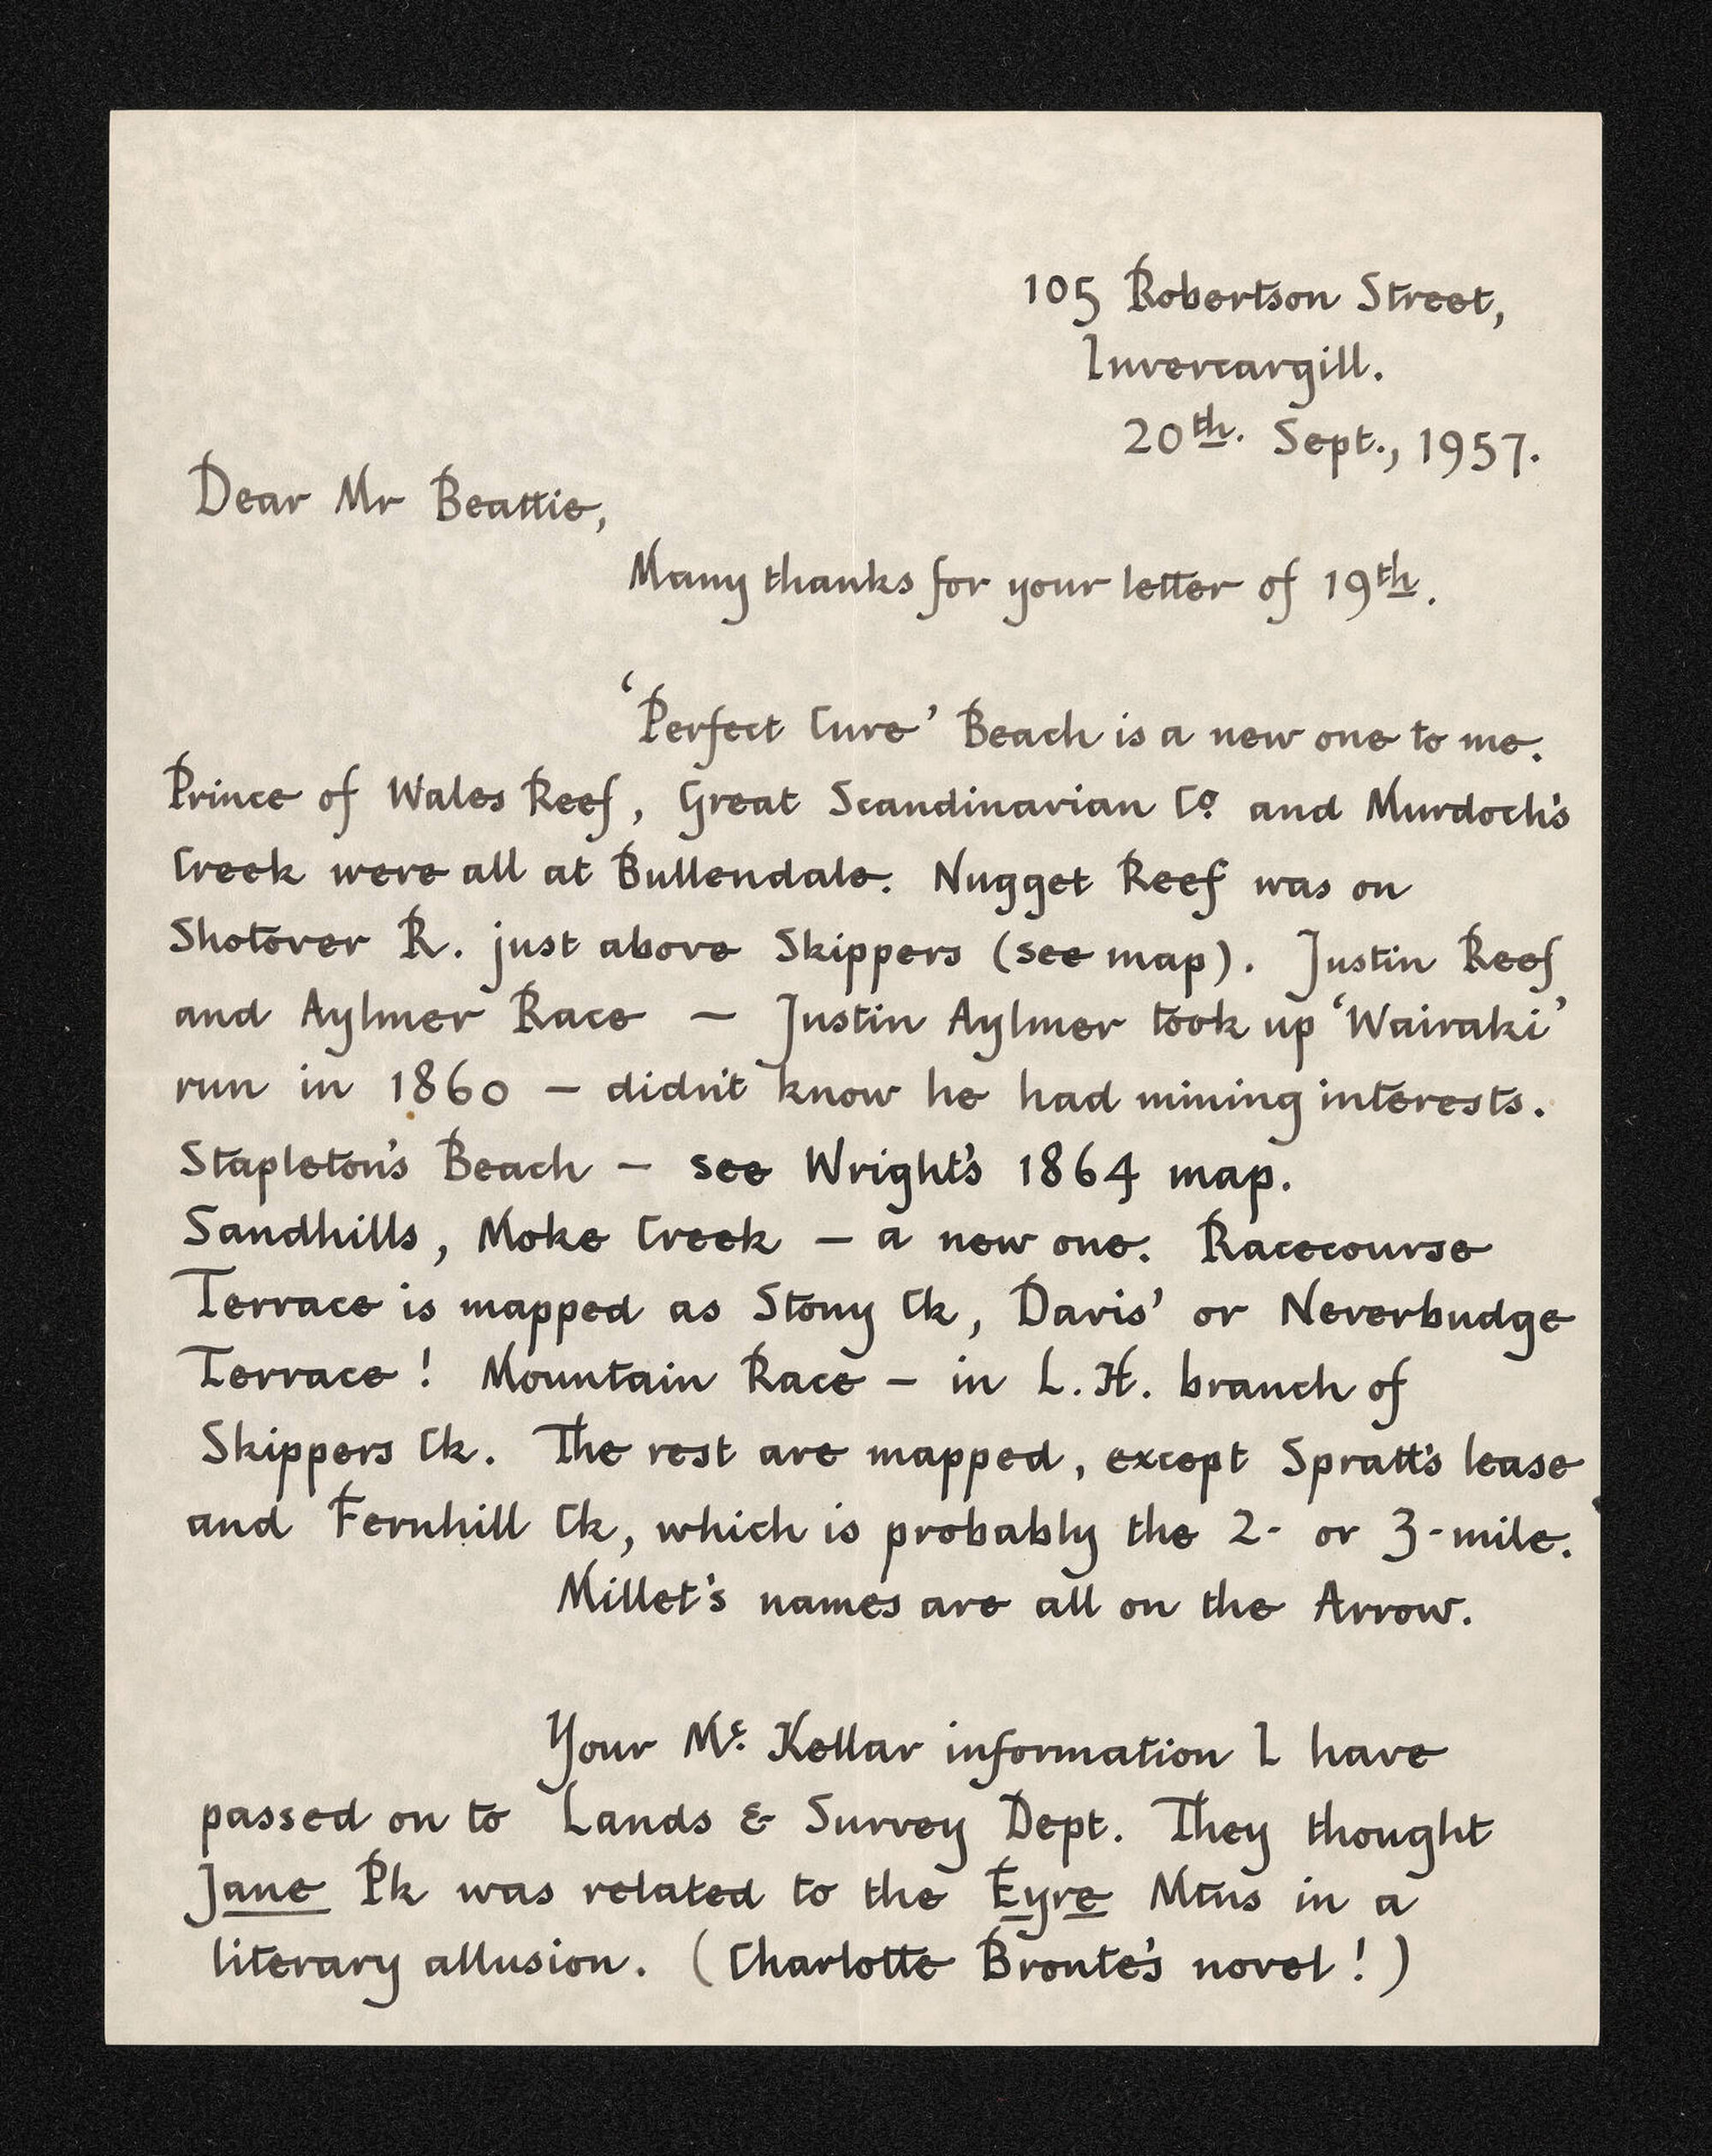 105 Robertson Street,
Invercargill.
20th. Sept., 1957.
Dear Mr Beattie,
Many thanks for your letter of 19th.
‘Perfect Cure’ Beach is a new one to me.
Prince of Wales Reef, Great Scandinavian Co and Murdoch's
Creek were all at Bullendale. Nugget Reef was on
Shotover R. just above Skippers (see map). Justin Reef
and Aylmer Race — Justin Aylmer took up ‘Wairaki’
run in 1860 — didn't know he had mining interests.
Stapleton's Beach — see Wright's 1864 map.
Sandhills, Moke Creek — a new one. Racecourse
Terrace is mapped as Stony Ck, Davis’ or Neverbudge
Terrace! Mountain Race — in L.H. branch of
Skippers Ck. The rest are mapped, except Spratt's lease
and Fernhill Ck, which is probably the 2- or 3-mile.
Millet's names are all on the Arrow.
Your Mc. Kellar information I have
passed on to Lands & Survey Dept. They thought
Jane Pk was related to the Eyre Mtns in a
literary allusion. (Charlotte Bronte's novel!)